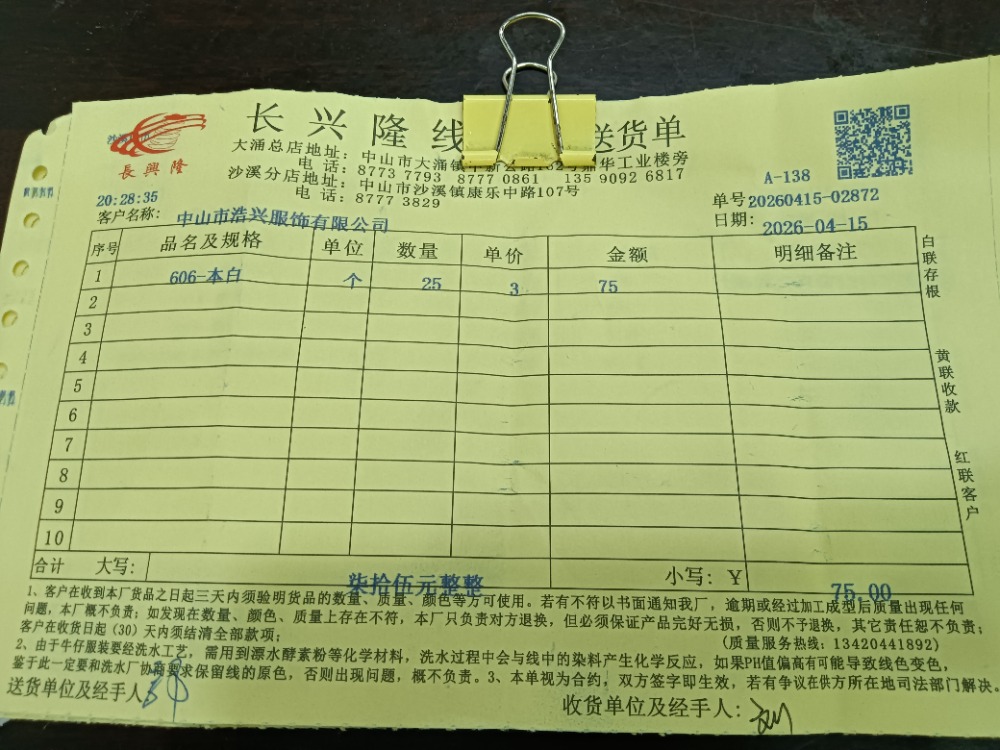 长兴隆线 送货单
長興隆
大涌总店地址：中山市大涌镇 华工业楼旁
电话：8773 7793 8777 0861 135 9092 6817
沙溪分店地址：中山市沙溪镇康乐中路107号
电话：8777 3829
A-138
20:28:35
单号20260415-02872
客户名称：中山市浩兴服饰有限公司
日期：2026-04-15
序号 品名及规格 单位 数量 单价 金额 明细备注
1 606-本白 个 25 3 75
2
3
4
5
6
7
8
9
10
白联存根
黄联收款
红联客户
合计 大写：柒拾伍元整整 小写：￥75.00
1、客户在收到本厂货品之日起三天内须验明货品的数量、质量、颜色等方可使用。若有不符以书面通知我厂，逾期或经过加工成型后质量出现任何
问题，本厂概不负责；如发现在数量、颜色、质量上存在不符，本厂只负责对方退换，但必须保证产品完好无损，否则不予退换，其它责任恕不负责；
客户在收货日起（30）天内须结清全部款项； (质量服务热线：13420441892)
2、由于牛仔服装要经洗水工艺，需用到漂水酵素粉等化学材料，洗水过程中会与线中的染料产生化学反应，如果PH值偏高有可能导致线变色，
鉴于此一定要和洗水厂协商要求保留线的原色，否则出现问题，概不负责。3、本单视为合约，双方签字即生效，若有争议在供方所在地司法部门解决。
送货单位及经手人
收货单位及经手人：